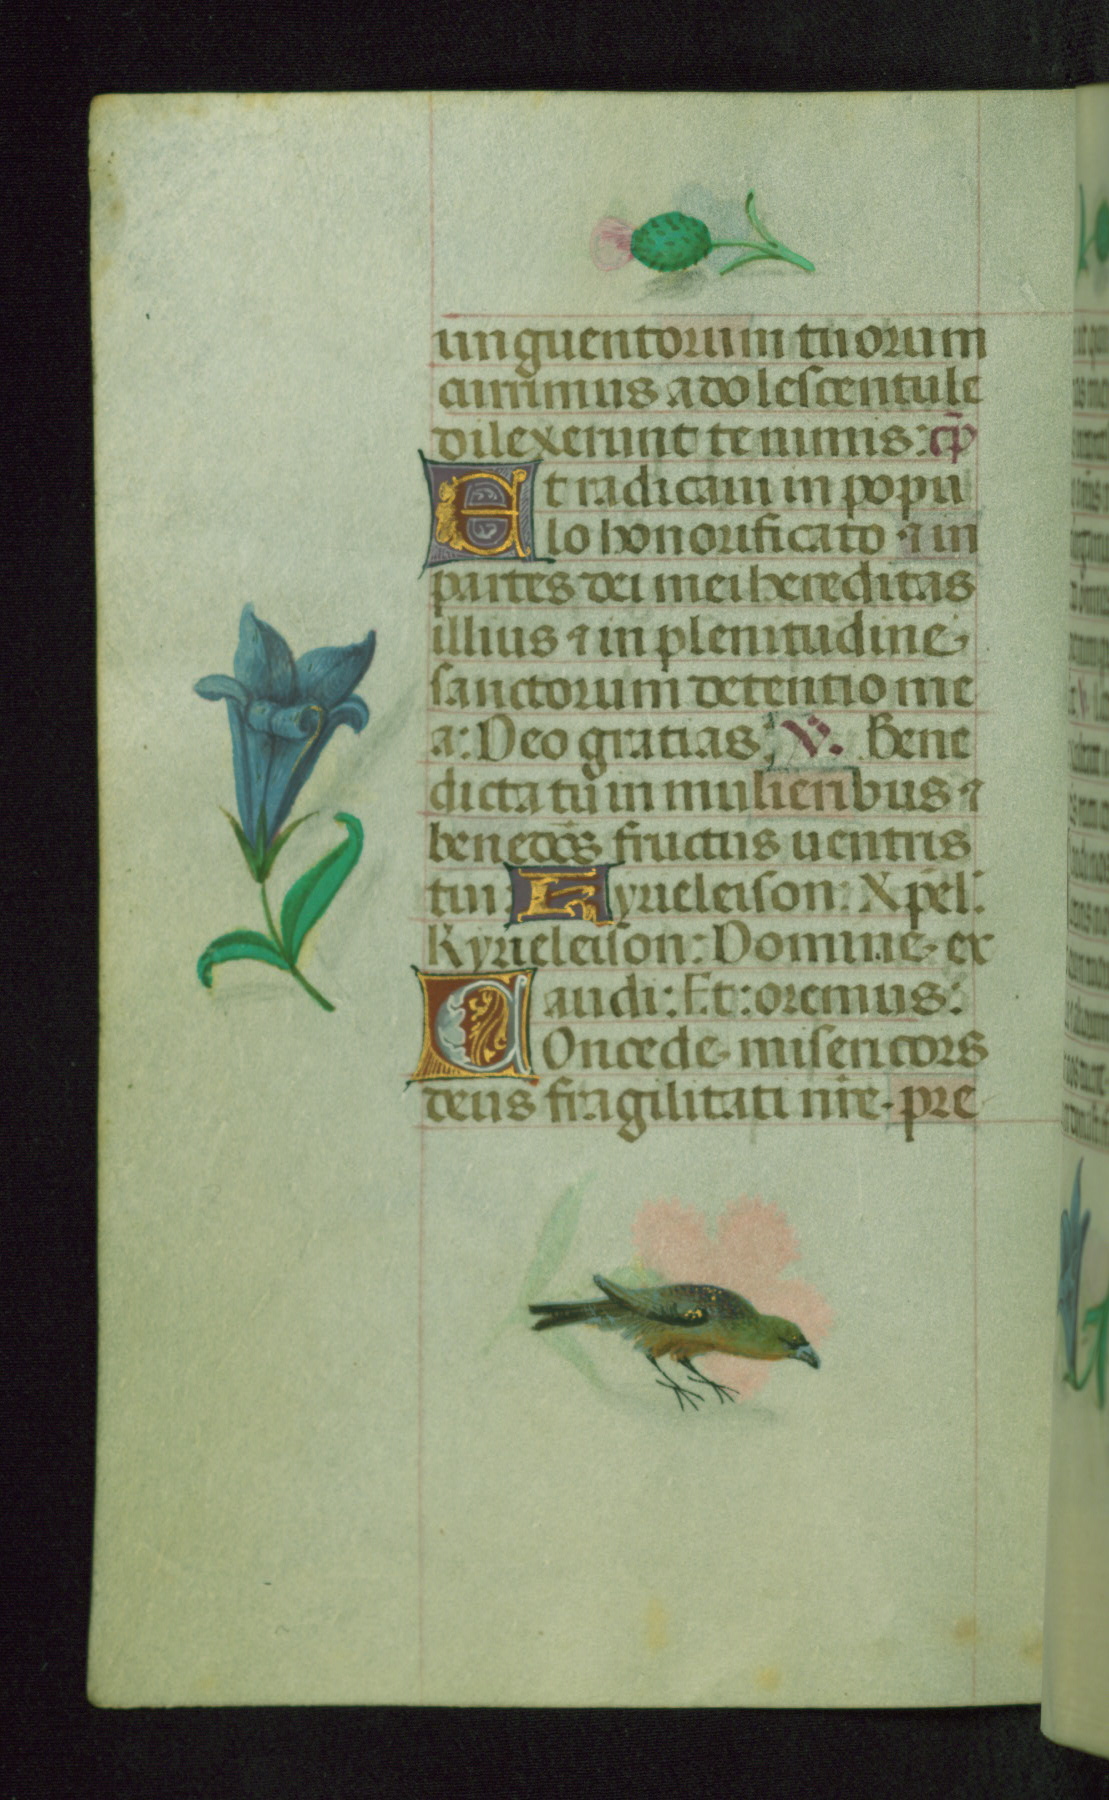 unguentorum tuorum
currimus adolescentule
dilexerunt te nimis: cp̄
Et radicaui in popu
lo honorificato ⁊ in
partes dei mei hereditas
illius ⁊ in plenitudine
sanctorum detentio me
a: Deo gratias: V. Bene
dicta tū in mulieribus ⁊
benedc̄s fructus uentris
tui Kyrieleison: Xp̄el:
Kyrieleison: Domine ex
audi: Et: oremus:
COncede misericors
deus fragilitati nr̄e pre